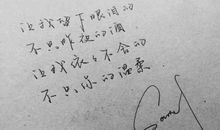 让我留下眼泪的
不只昨夜的酒
让我依依不舍的
不只你的温柔